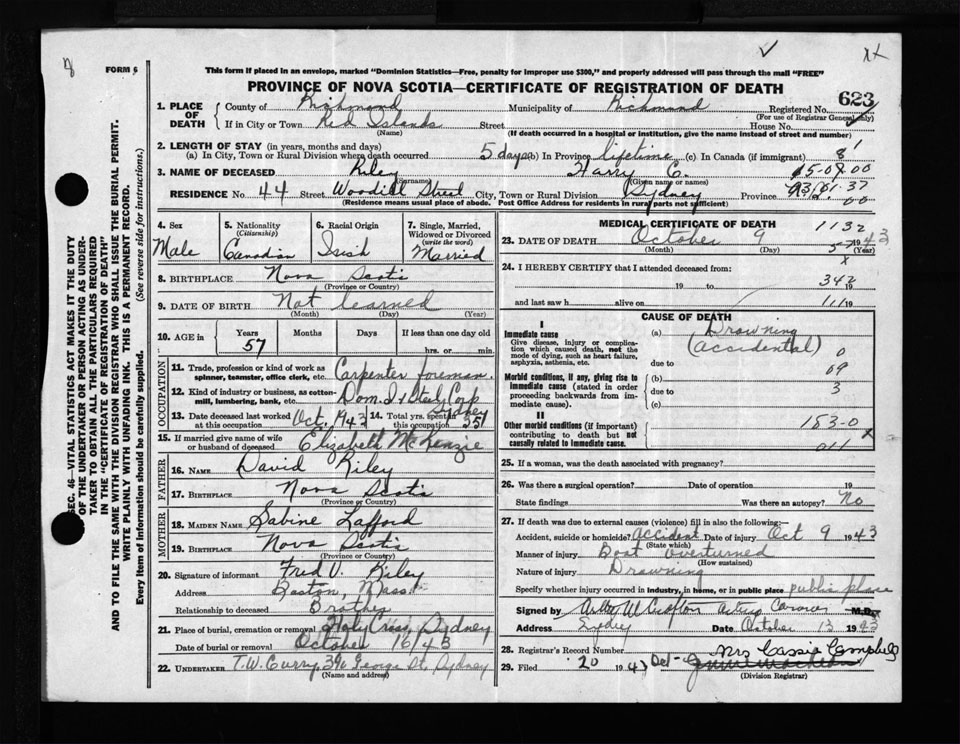 FORM 6
This form if placed in an envelope, marked "Dominion Statistics—Free, penalty for improper use $300," and properly addressed will pass through the mail "FREE"
PROVINCE OF NOVA SCOTIA—CERTIFICATE OF REGISTRATION OF DEATH
623
SEC. 46—VITAL STATISTICS ACT MAKES IT THE DUTY
OF THE UNDERTAKER OR PERSON ACTING AS UNDER-
TAKER TO OBTAIN ALL THE PARTICULARS REQUIRED
IN THE "CERTIFICATE OF REGISTRATION OF DEATH"
AND TO FILE THE SAME WITH THE DIVISION REGISTRAR WHO SHALL ISSUE THE BURIAL PERMIT.
WRITE PLAINLY WITH UNFADING INK. THIS IS A PERMANENT RECORD.
Every item of information should be carefully supplied. (See reverse side for instructions.)
1. PLACE OF DEATH County of Richmond Municipality of Richmond Registered No.
(For use of Registrar General only)
If in City or Town Red Islands Street House No.
(Name) (If death occurred in a hospital or institution, give the name instead of street and number)
2. LENGTH OF STAY (in years, months and days)
(a) In City, Town or Rural Division where death occurred 5 days (b) In Province lifetime (c) In Canada (if immigrant) 8
3. NAME OF DECEASED Riley Harry C.
(Surname) (Given name or names)
RESIDENCE No. 44 Street Woodill Street City, Town or Rural Division Sydney Province
(Residence means usual place of abode. Post Office Address for residents in rural parts not sufficient)
4. Sex Male
5. Nationality (Citizenship) Canadian
6. Racial Origin Irish
7. Single, Married, Widowed or Divorced (write the word) Married
8. BIRTHPLACE Nova Scotia
(Province or Country)
9. DATE OF BIRTH Not learned
(Month) (Day) (Year)
10. AGE in Years Months Days If less than one day old
57 hrs. or min.
OCCUPATION
11. Trade, profession or kind of work as Carpenter foreman
spinner, teamster, office clerk, etc.
12. Kind of industry or business, as cotton-mill, lumbering, bank, etc. Dom. I & Steel Corp Sydney
13. Date deceased last worked at this occupation Oct, 1943
14. Total yrs. spent in this occupation 35
15. If married give name of wife or husband of deceased Elizabeth McKenzie
FATHER
16. NAME David Riley
17. BIRTHPLACE Nova Scotia
(Province or Country)
MOTHER
18. MAIDEN NAME Sabine Lafford
19. BIRTHPLACE Nova Scotia
(Province or Country)
20. Signature of informant Fred V. Riley
Address Boston, Mass
Relationship to deceased Brother
21. Place of burial, cremation or removal Holy Cross, Sydney
Date of burial or removal October 16/43
22. UNDERTAKER T.W. Curry, 390 George St, Sydney
(Name and address)
MEDICAL CERTIFICATE OF DEATH 1132
23. DATE OF DEATH October 9 1943
(Month) (Day) (Year)
24. I HEREBY CERTIFY that I attended deceased from:
19 to 19 342
and last saw h alive on 19 111
CAUSE OF DEATH
I
Immediate cause
Give disease, injury or complication which caused death, not the mode of dying, such as heart failure, asphyxia, asthenia, etc.
(a) Drowning
(accidental) 0
due to 09
Morbid conditions, if any, giving rise to immediate cause (stated in order proceeding backwards from immediate cause).
(b)
due to 3
(c)
II
Other morbid conditions (if important) contributing to death but not causally related to immediate cause.
183-0
011
25. If a woman, was the death associated with pregnancy?
26. Was there a surgical operation? Date of operation 19
State findings Was there an autopsy? No
27. If death was due to external causes (violence) fill in also the following:—
Accident, suicide or homicide? Accident Date of injury Oct 9 1943
(State which)
Manner of injury Boat overturned
(How sustained)
Nature of injury Drowning
Specify whether injury occurred in industry, in home, or in public place public place
Signed by Coroner M.D.
Address Sydney Date October 13 1943
28. Registrar's Record Number
29. Filed 20 1943 Oct- Mrs Cassie Campbell
(Division Registrar)